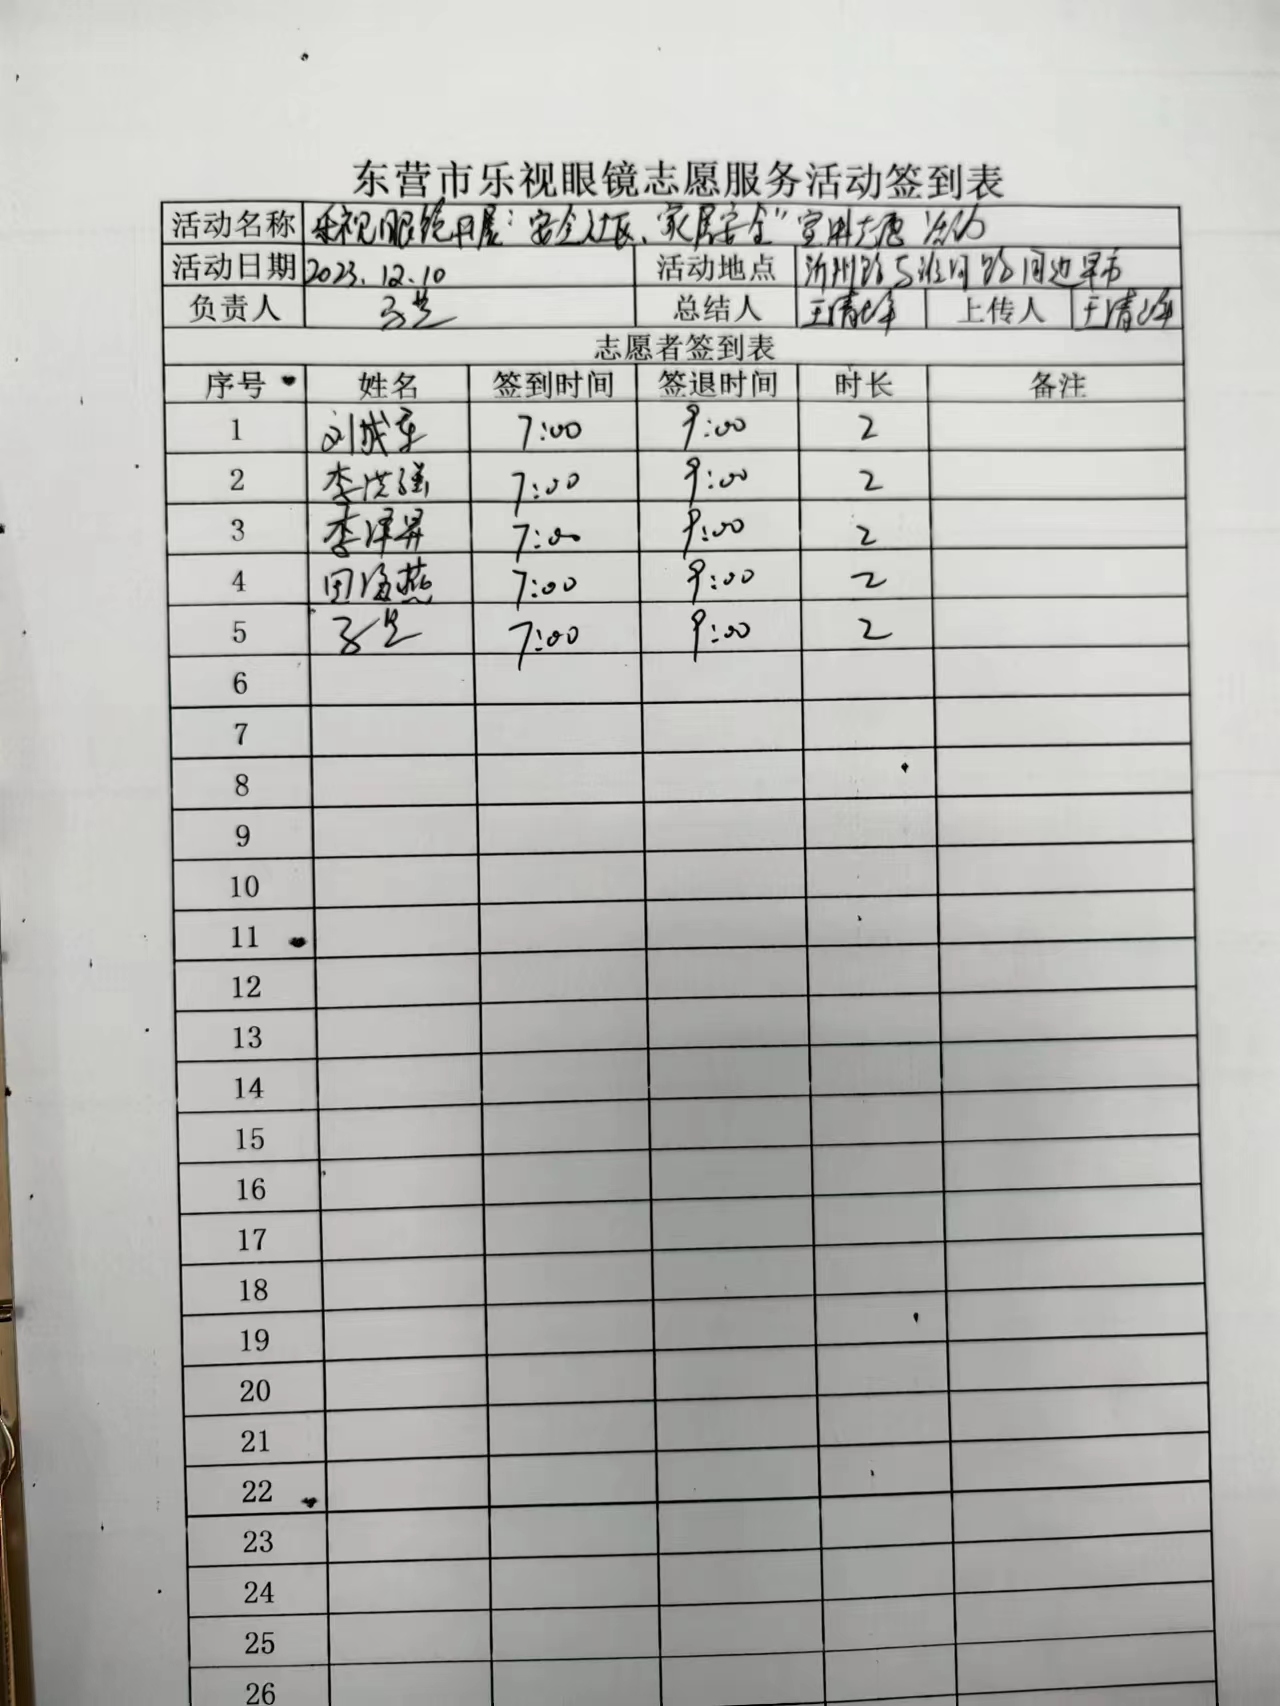 东营市乐视眼镜志愿服务活动签到表
活动名称 乐视眼镜开展“安全社区、家居安全”宣传志愿活动
活动日期 2023.12.10 活动地点 沂州路与淮河路周边早市
负责人 总结人 王清华 上传人 王清华
志愿者签到表
序号 姓名 签到时间 签退时间 时长 备注
1 刘成军 7:00 9:00 2
2 李洪强 7:00 9:00 2
3 李泽昇 7:00 9:00 2
4 田海燕 7:00 9:00 2
5 7:00 9:00 2
6
7
8
9
10
11
12
13
14
15
16
17
18
19
20
21
22
23
24
25
26